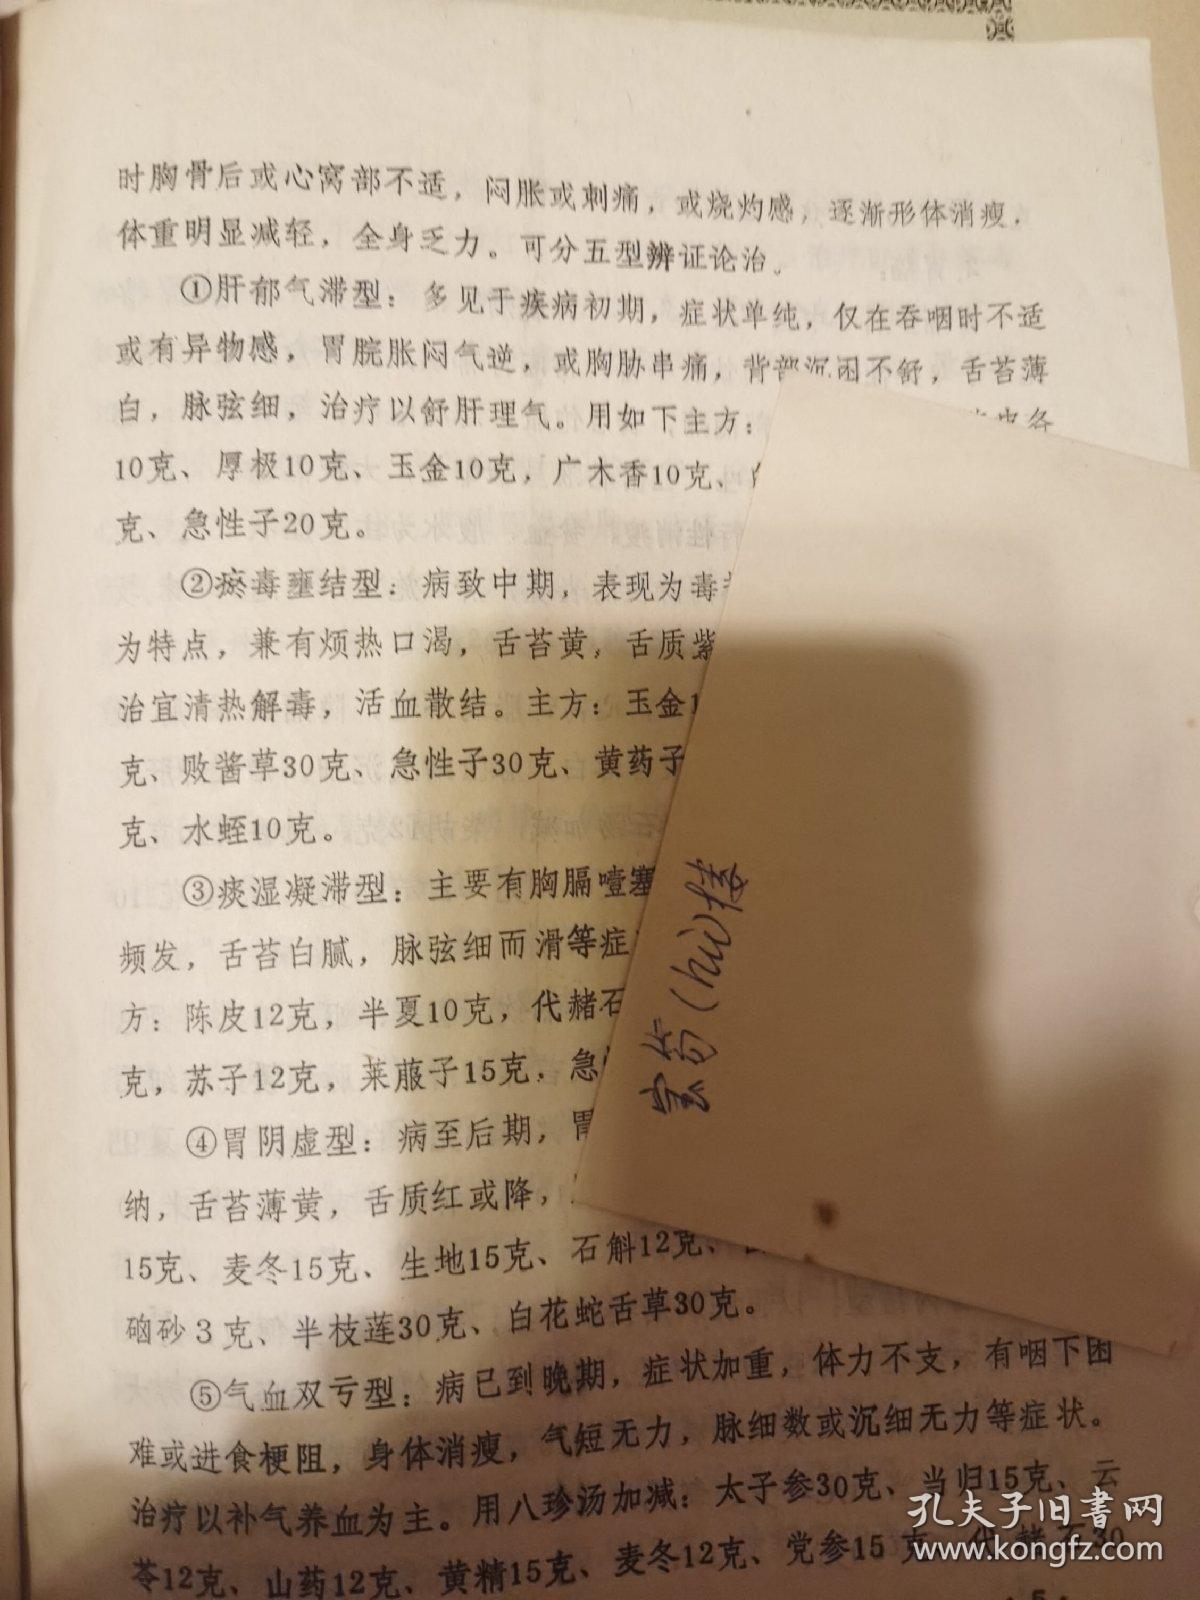 时胸骨后或心窝部不适，闷胀或刺痛，或烧灼感，逐渐形体消瘦，
体重明显减轻，全身乏力。可分五型辨证论治。
①肝郁气滞型：多见于疾病初期，症状单纯，仅在吞咽时不适
或有异物感，胃脘胀闷气逆，或胸胁串痛，背部沉困不舒，舌苔薄
白，脉弦细，治疗以舒肝理气。用如下主方：
10克、厚极10克、玉金10克，广木香10克、
克、急性子20克。
②瘀毒壅结型：病致中期，表现为毒
为特点，兼有烦热口渴，舌苔黄，舌质紫
治宜清热解毒，活血散结。主方：玉金1
克、败酱草30克、急性子30克、黄药子
克、水蛭10克。
③痰湿凝滞型：主要有胸膈噎塞
频发，舌苔白腻，脉弦细而滑等症
方：陈皮12克，半夏10克，代赭石
克，苏子12克，莱菔子15克，急
④胃阴虚型：病至后期，胃
纳，舌苔薄黄，舌质红或降，
15克、麦冬15克、生地15克、石斛12克、
硇砂3克、半枝莲30克、白花蛇舌草30克。
⑤气血双亏型：病已到晚期，症状加重，体力不支，有咽下困
难或进食梗阻，身体消瘦，气短无力，脉细数或沉细无力等症状。
治疗以补气养血为主。用八珍汤加减：太子参30克、当归15克、云
苓12克、山药12克、黄精15克、麦冬12克、党参15克、代赭石30
·5·
孔夫子旧书网
www.kongfz.com